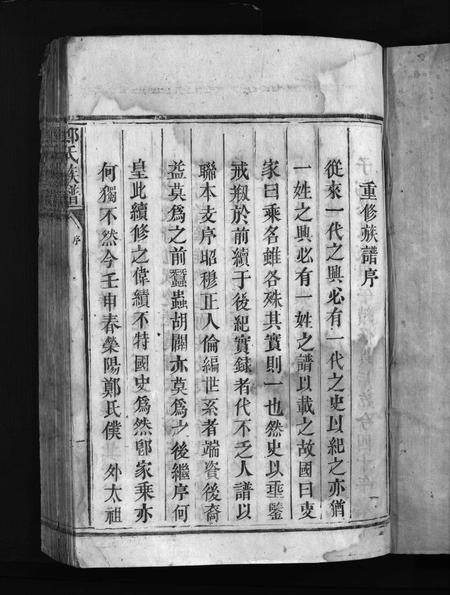 重修族譜序
從來一代之興必有一代之史以紀之亦猶
一姓之興必有一姓之譜以載之故國曰史
家曰乘名雖各殊其實則一也然史以垂鑒
戒叙於前續于後紀實録者代不乏人譜以
聯本支序昭穆正人倫編世系者端資後裔
益莫爲之前蠶蟲胡闢亦莫爲之後繼序何
皇此續修之偉績不特國史爲然卽家乘亦
何獨不然今壬申春榮陽鄭氏僕 外太祖
鄭氏族譜
序
一